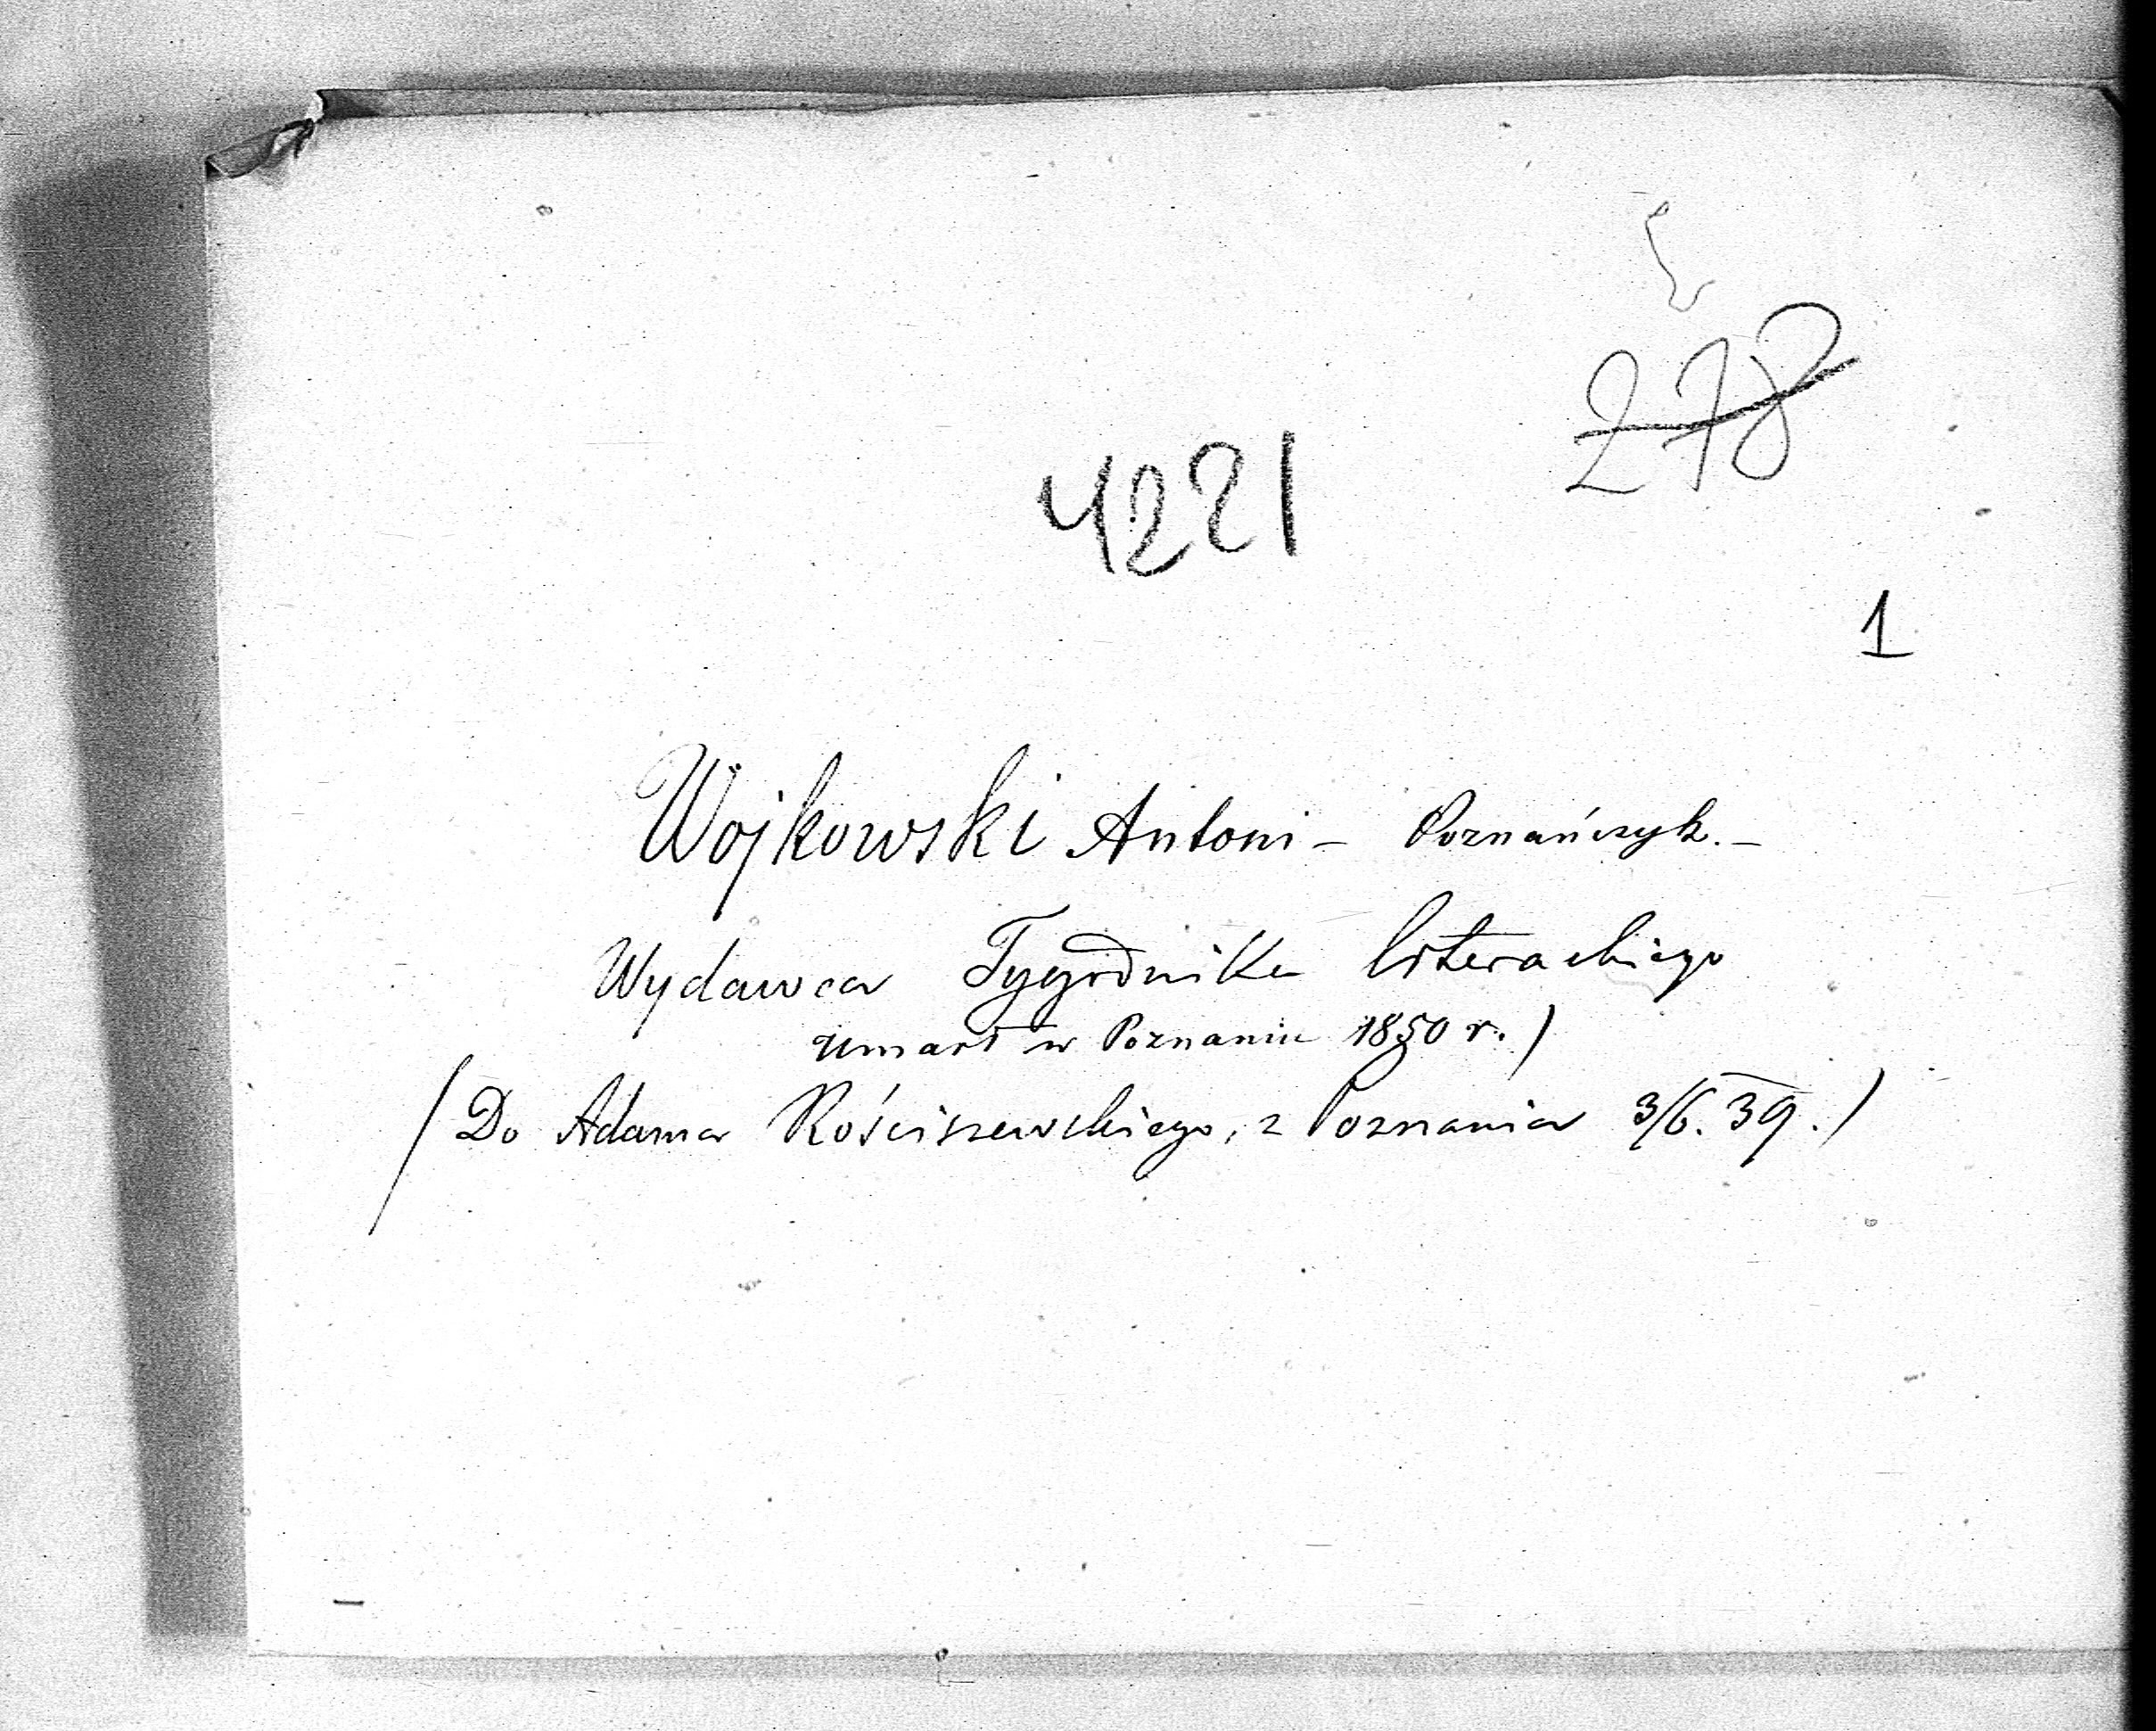 278
4221
1
Wojkowski Antoni – Poznańczyk. –
Wydawca Tygodnika literackiego
umarł w Poznaniu 1850 r.)
(Do Adama Rościszewskiego, z Poznania 3/6. 39.)